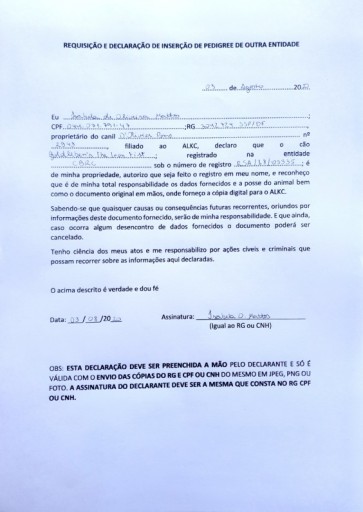 REQUISIÇÃO E DECLARAÇÃO DE INSERÇÃO DE PEDIGREE DE OUTRA ENTIDADE
de Agosto de 20
Eu de Oliveira Mattos ;
CPF ;RG SSP/DF ;
proprietário do canil nº
, filiado ao ALKC, declaro que o cão
The Love First ; registrado na entidade
CBKC sob o número de registro ; é
de minha propriedade, autorizo que seja feito o registro em meu nome, e reconheço
que é de minha total responsabilidade os dados fornecidos e a posse do animal bem
como o documento original em mãos, onde forneço a cópia digital para o ALKC.
Sabendo-se que quaisquer causas ou consequências futuras recorrentes, oriundos por
informações deste documento fornecido, serão de minha responsabilidade. E que ainda,
caso ocorra algum desencontro de dados fornecidos o documento poderá ser
cancelado.
Tenho ciência dos meus atos e me responsabilizo por ações cíveis e criminais que
possam recorrer sobre as informações aqui declaradas.
O acima descrito é verdade e dou fé
Data: 03/08/2020 Assinatura: Isabela O. Mattos
(Igual ao RG ou CNH)
OBS: ESTA DECLARAÇÃO DEVE SER PREENCHIDA A MÃO PELO DECLARANTE E SÓ É
VÁLIDA COM O ENVIO DAS CÓPIAS DO RG E CPF OU CNH DO MESMO EM JPEG, PNG OU
FOTO. A ASSINATURA DO DECLARANTE DEVE SER A MESMA QUE CONSTA NO RG CPF
OU CNH.